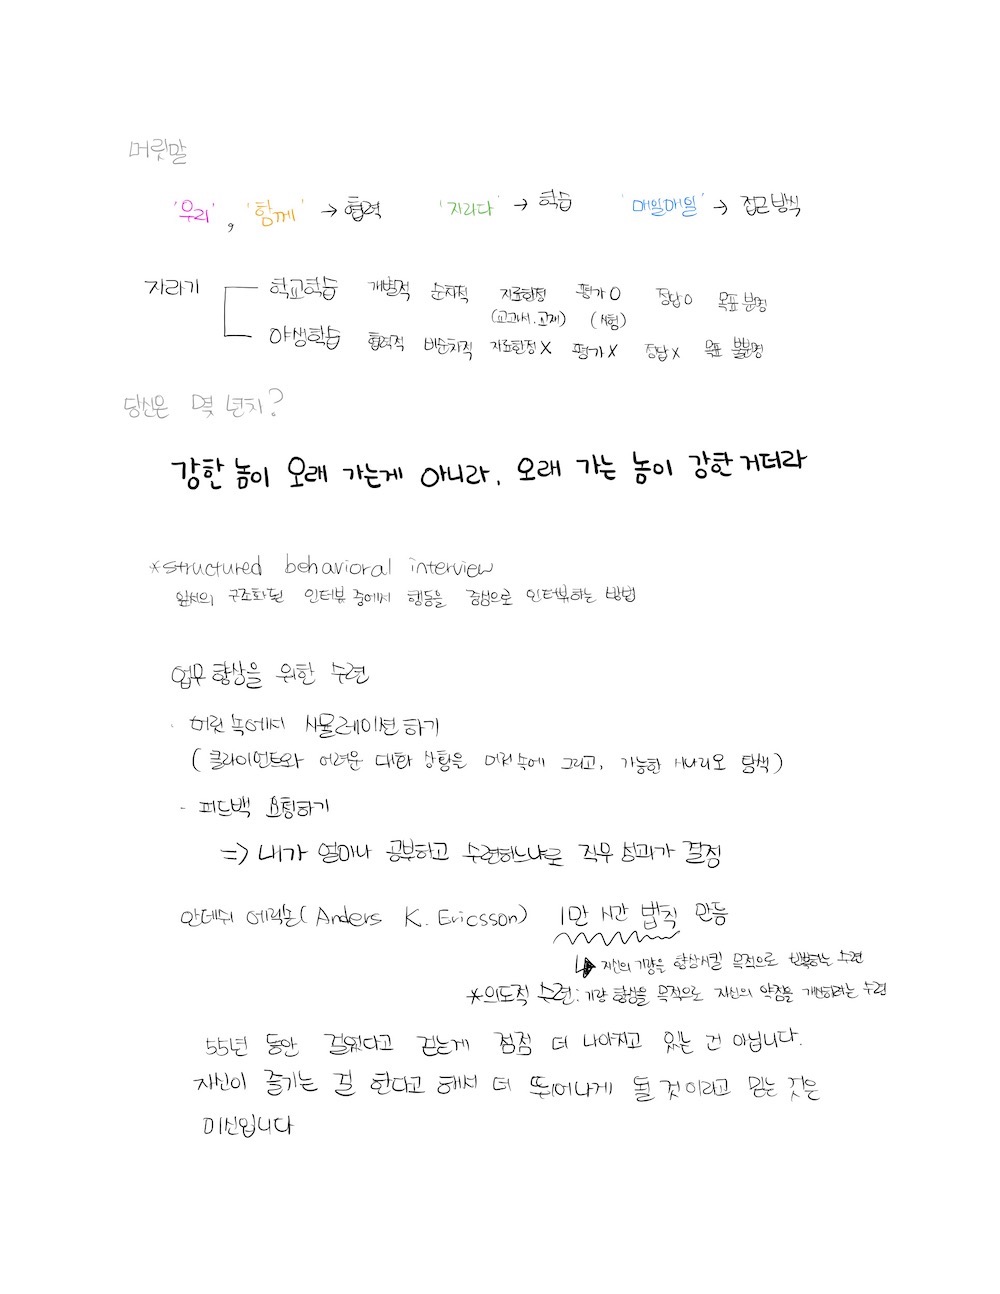 머릿말
'우리', '함께' → 협력 '자라다' → 학습 '매일매일' → 접근방식
자라기
학교학습 개별적 순차적 자료한정 평가O 정답O 목표 분명
(교과서.교재) (시험)
야생학습 협력적 비순차적 자료한정X 평가X 정답X 목표 불분명
당신은 몇 년차?
강한 놈이 오래 가는게 아니라, 오래 가는 놈이 강한거더라
*structured behavioral interview
구조화된 인터뷰 중에서 행동을 중심으로 인터뷰하는 방법
업무 향상을 위한 수련
· 머릿속에서 시뮬레이션하기
(클라이언트와 어려운 대화 상황을 머릿속에 그리고, 가능한 시나리오 탐색)
· 피드백 요청하기
=> 내가 얼마나 공부하고 수련하느냐로 직무성과가 결정
안데쉬 에릭손(Anders K. Ericsson) 1만 시간 법칙 만듬
↳ 자신의 기량을 향상시킬 목적으로 반복하는 수련
*의도적 수련: 기량 향상을 목적으로 자신의 약점을 개선하려는 수련
55년 동안 걸었다고 걷는게 점점 더 나아지고 있는 건 아닙니다.
자신이 즐기는 걸 한다고 해서 더 뛰어나게 될 것이라고 믿는 것은
미신입니다